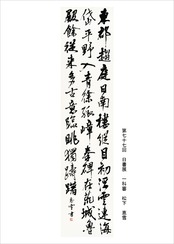 東郡趨庭日南樓縦目初浮雲連海
岱平野入青徐孤嶂秦碑在荒城魯
殿餘従来多古意臨眺獨躊躇
第七十七回 日書展 一科審 松下